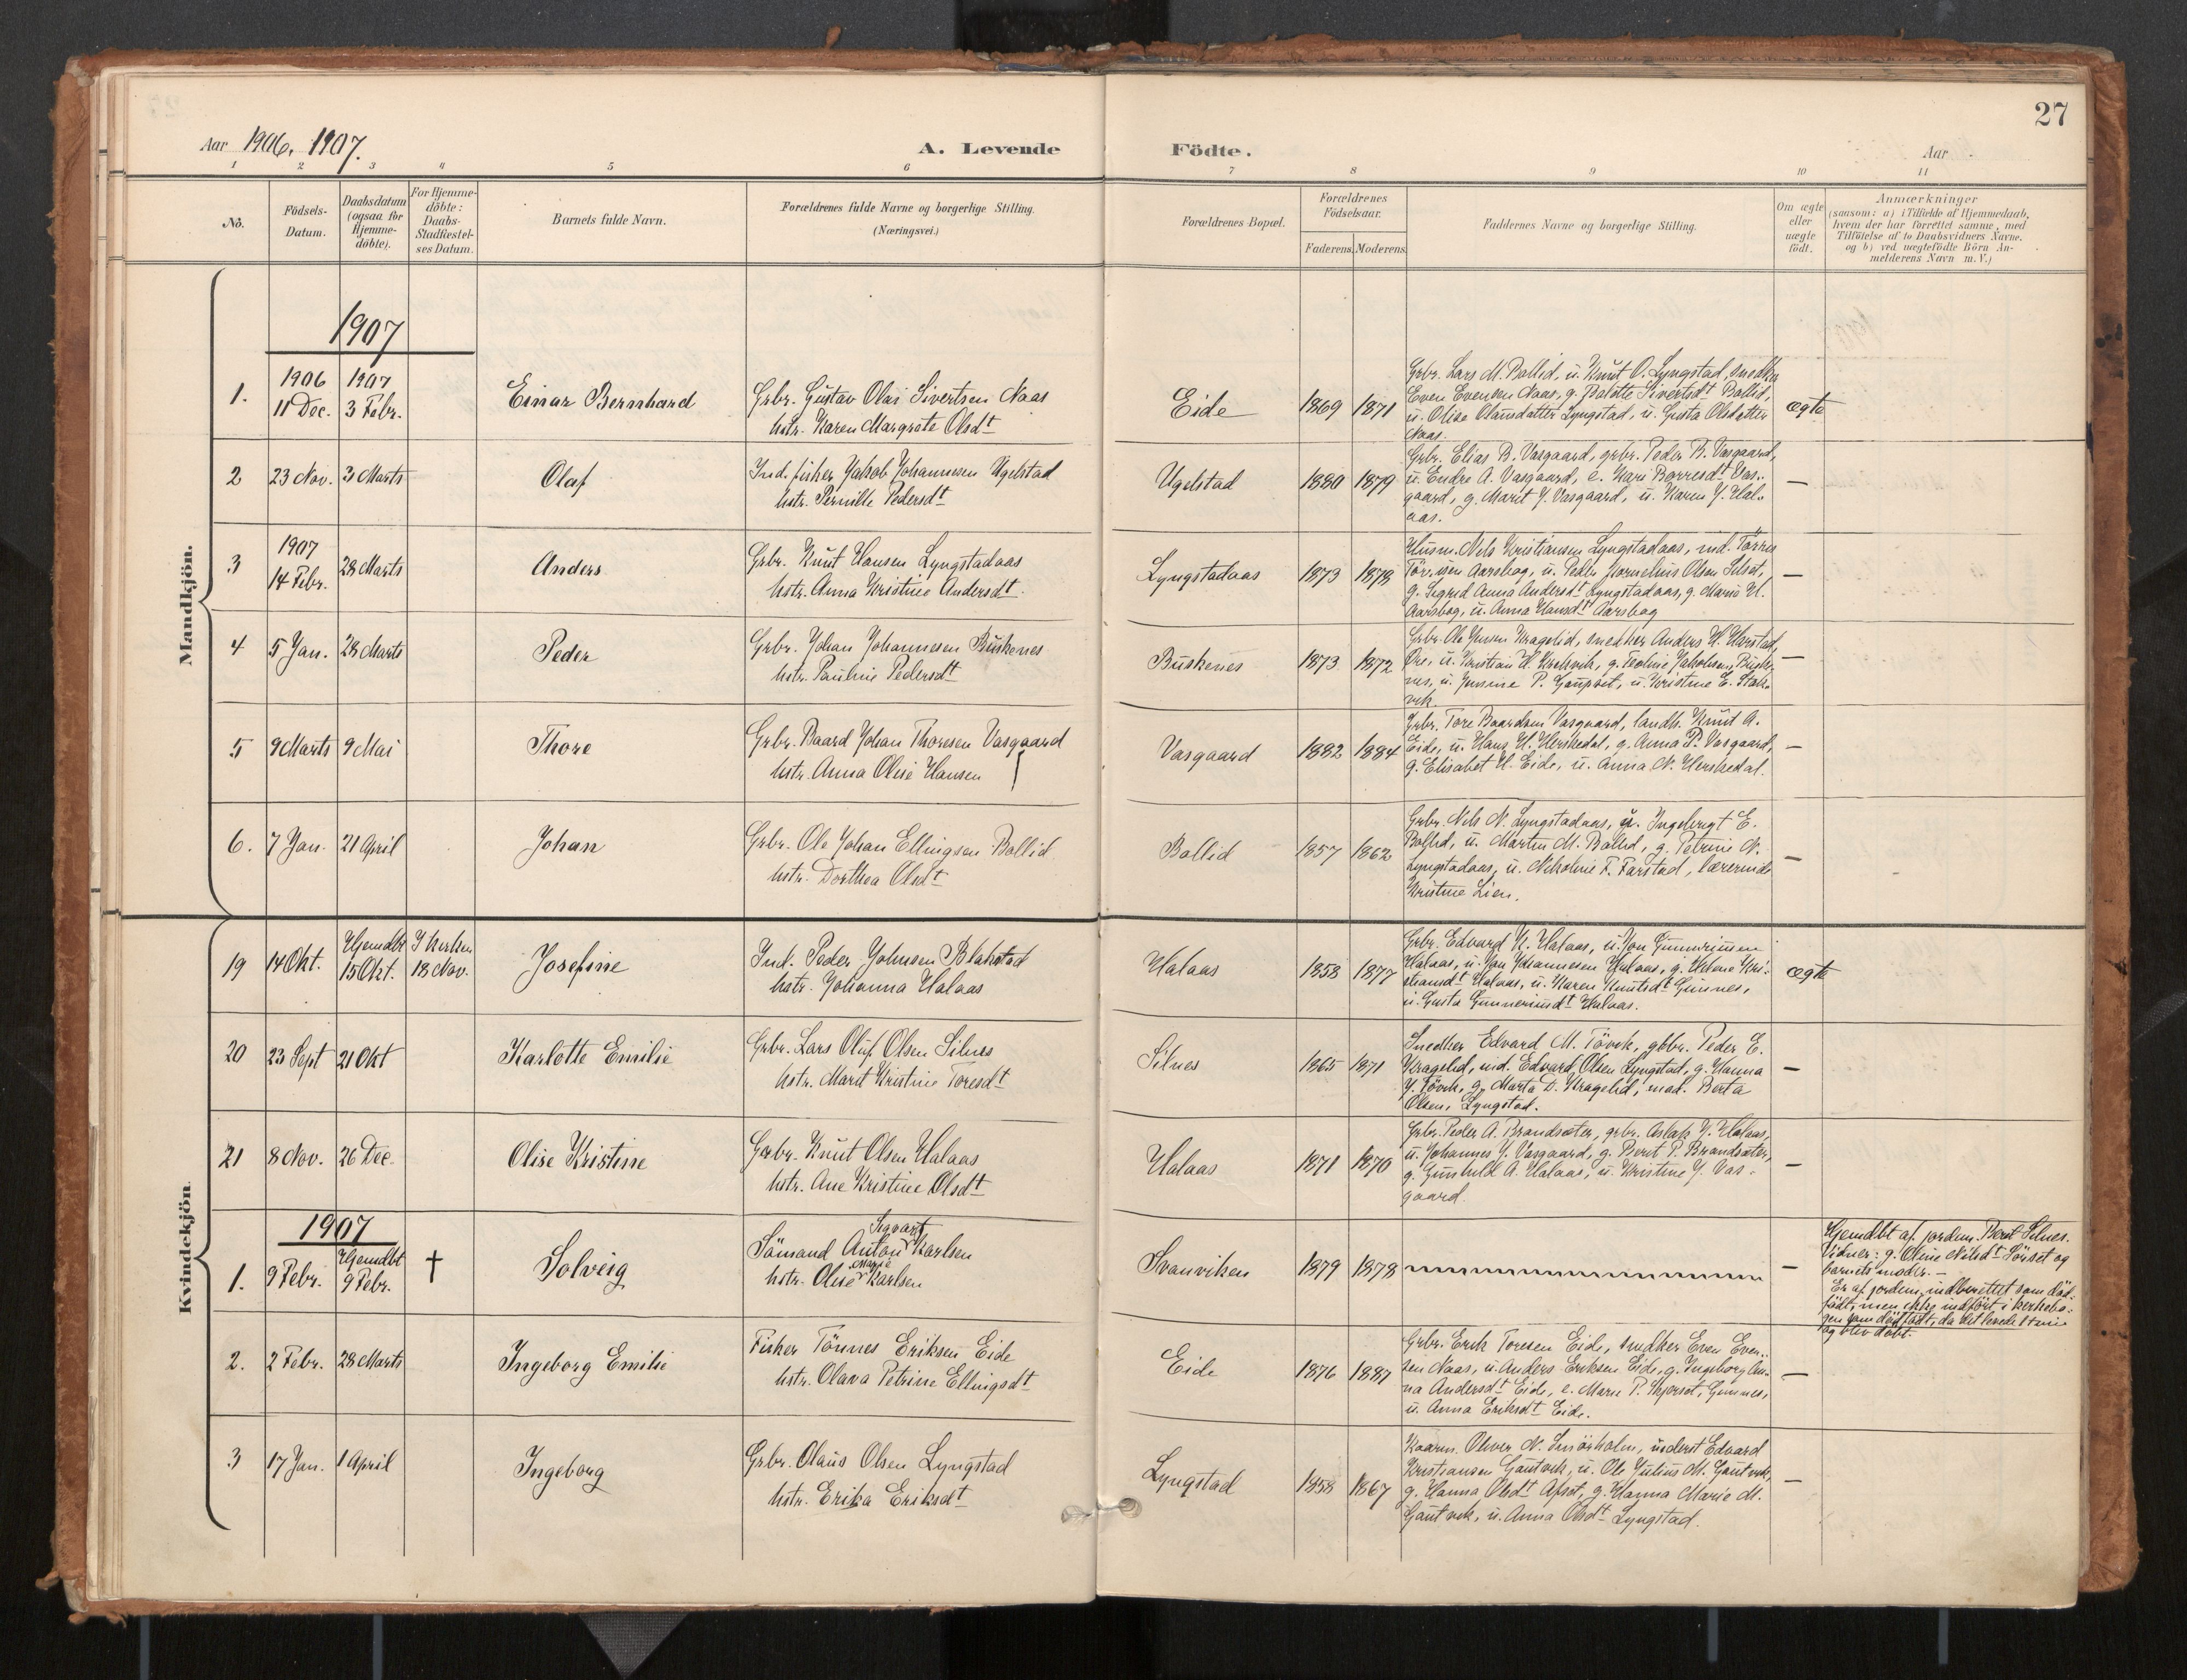 27
Aar 1906, 1907.
A. Levende Födte.
Aar
1 2 3 4 5 6 7 8 9 10 11
No.
Födsels-
Datum.
Daabsdatum
(ogsaa for
Hjemme-
döbte).
For Hjemme-
döbte:
Daabs-
Stadfæstel-
ses Datum.
Barnets fulde Navn.
Forældrenes fulde Navne og borgerlige Stilling.
(Næringsvei.)
Forældrenes Bopæl.
Forældrenes
Födselsaar.
Faderens. Moderens.
Faddernes Navne og borgerlige Stilling.
Om ægte
eller
uægte
födt.
Anmærkninger
(saasom: a) i Tilfælde af Hjemmedaab,
hvem der har forrettet samme, med
Tilföielse af to Daabsvidners Navne.
og b) ved uægtefödte Börn An-
melderens Navn m.V.)
Mandkjön.
1907
1.
1906
11 Dec.
1907
3 Febr.
Einar Bernhard
Grbr. Gustav Olai Sivertsen Naas
hstr. Karen Margrete Olsdt
Eide
1869 1871
Grbr. Lars M. Bollid, u. Knut O. Lyngstad, snedker
Even Evensen Naas, g. Sivertsdt Bollid,
u. Olise Olausdatter Lyngstad, u. Gusta Olsdatter
Naas.
ægte
2
23 Nov. 3 Marts
Olaf
Ind. fisker Jakob Johannesen Ugelstad
hstr. Pernille Pedersdt
Ugelstad
1880 1879
Grbr. Elias B. Vasgaard, grbr. Peder B. Vasgaard,
u. Endre A. Vasgaard, e. Kari Borresdt Vas-
gaard, g. Marit J. Vasgaard, u. Karen J. Hal-
aas.
—
3
1907
14 Febr.
28 Marts
Anders
Grbr. Knut Hansen Lyngstadaas
hstr. Anna Kristine Andersdt.
Lyngstadaas
1873 1878
Husm. Nels Kristiansen Lyngstadaas, ind. Törres
Aarsbog, u. Peder Kornelius Olsen Silset,
g. Sigrid Anna Andersdt Lyngstadaas, g. Marie H.
Aarsbog, u. Anna Hansdt Aarsbog
—
4
5 Jan. 28 Marts
Peder
Grbr. Johan Johannesen Buskenes
hstr. Pauline Pedersdt
Buskenes
1873 1872
Grbr. Ole Jensen Kragelid, snedker Anders H. Harstad,
Öre, u. Kristian H. g. Teoline Jakobsen, Buske-
nes, u. Jensine P. Gaupset, u. Kristine E. Stak-
vik.
—
5
9 Marts 9 Mai
Thore
Grbr. Baard Johan Thoresen Vasgaard
hstr. Anna Olise Hansen
Vasgaard
1882 1884
Grbr. Tore Baardsen Vasgaard, landh. Knut A.
Eide, u. Hans H. Herskedal, g. Anna P. Vasgaard,
g. Elisabet H. Eide, u. Anna N. Herskedal.
—
6.
7 Jan. 21 April
Johan
Grbr. Ole Johan Ellingsen Bollid
hstr. Dorthea Olsdt
Bollid
1857 1862
Grbr. Nels N. Lyngstadaas, u. Ingebrigt E.
Bollid, u. Martin M. Bollid, g. Petrine N.
Lyngstadaas, u. Nikoline F. Farstad, lærerinde
Kristine Lien.
—
Kvindekjön.
19
14 Okt.
Hjemdbt
15 Okt.
I kirken
18 Nov.
Josefine
Ind. Peder Johnsen Blakstad
hstr. Johanna Halaas
Halaas
1858 1877
Grbr. Edvard K. Halaas, u. Jon Gunneriussen
Halaas, u. Jon Johannesen Halaas, g. Helene Kri-
stiansdt Halaas, u. Karen Knutsdt Gimnes,
u. Gusta Gunneriusdt Halaas.
ægte
20
23 Sept 21 Okt
Karlotte Emilie
Grbr. Lars Oluf Olsen Silnes
hstr. Marit Kristine Toresdt
Silnes
1865 1871
Snedker Edvard M. Tövik, gbbr. Peder E.
Kragelid, ind. Edvard Olsen Lyngstad, g. Hanna
J. Tövik, g. Marta D. Kragelid, mad. Berta
Olsen, Lyngstad.
—
21
8 Nov. 26 Dec.
Olise Kristine
Grbr. Knut Olsen Halaas
hstr. Ane Kristine Olsdt
Halaas
1871 1870
Grbr. Peder A. Brandsæter, grbr. Aslak J. Halaas,
u. Johannes J. Vasgaard, g. Berit P. Brandsæter,
g. Gunhild A. Halaas, u. Kristine J. Vas-
gaard.
—
1907
1.
9 Febr.
Hjemdbt
9 Febr.
†
Solveig
Sigvart
Sömand Anton Karlsen
Marie
hstr. Olise Karlsen
Svanviken
1879 1878
—
Hjemdbt af jordem. Berit Silnes.
Vidner: g. Oline Nilsdt Sörset og
barnets moder. —
Er af jordem. indberettet som död-
födt, men ikke indfört i kirkebo-
gen som dödfödt, da det levede
og blev döbt.
2.
2 Febr. 28 Marts
Ingeborg Emilie
Fisker Tönnes Eriksen Eide
hstr. Olava Petrine Ellingsdt
Eide
1876 1887
Grbr. Erik Toresen Eide, snedker Even Even-
sen Naas, u. Anders Eriksen Eide, g. Ingeborg An-
na Andersdt Eide, e. Marie P. Gimnes,
u. Anna Eriksdt Eide.
—
3
17 Jan. 1 April
Ingeborg
Grbr. Olaus Olsen Lyngstad
hstr. Erika Eriksdt
Lyngstad
1858 1867
Kaarm. Oliver N. Smörholm, underst Edvard
Kristiansen Gautvik, u. Ole Julius M. Gautvik,
g. Hanna Olsdt g. Hanna Marie M.
Gautvik, u. Anna Olsdt Lyngstad.
—